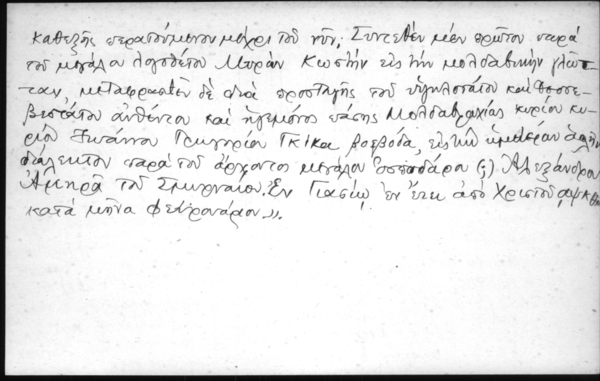 καθεξῆς περατούμενον μέχρι τοῦ νῦν, Συντεθὲν μὲν πρῶτον παρὰ
τοῦ μεγάλου λογοθέτου Μυρὸν Κωστὴν εἰς τὴν μολδαβικὴν γλῶτ-
ταν, μεταφρασθὲν δὲ διὰ προσταγῆς τοῦ ὑψηλοτάτου καὶ θεοσε-
βεστάτου αὐθέντου καὶ ἡγεμόνος πάσης Μολδαβλαχίας κυρίου κυ-
ρίου Ἰωάννου Γρηγορίου Γκίκα βοεβόδα, εἰς τὴν ἡμετέραν
διάλεκτον παρὰ τοῦ ἄρχοντος μεγάλου (;) Ἀλεξάνδρου
Ἀμηρᾶ τοῦ Σμυρναίου. Ἐν Γιασίῳ ἐν ἔτει ἀπὸ Χριστοῦ αψκθ
κατὰ μῆνα Φευρουάριον».